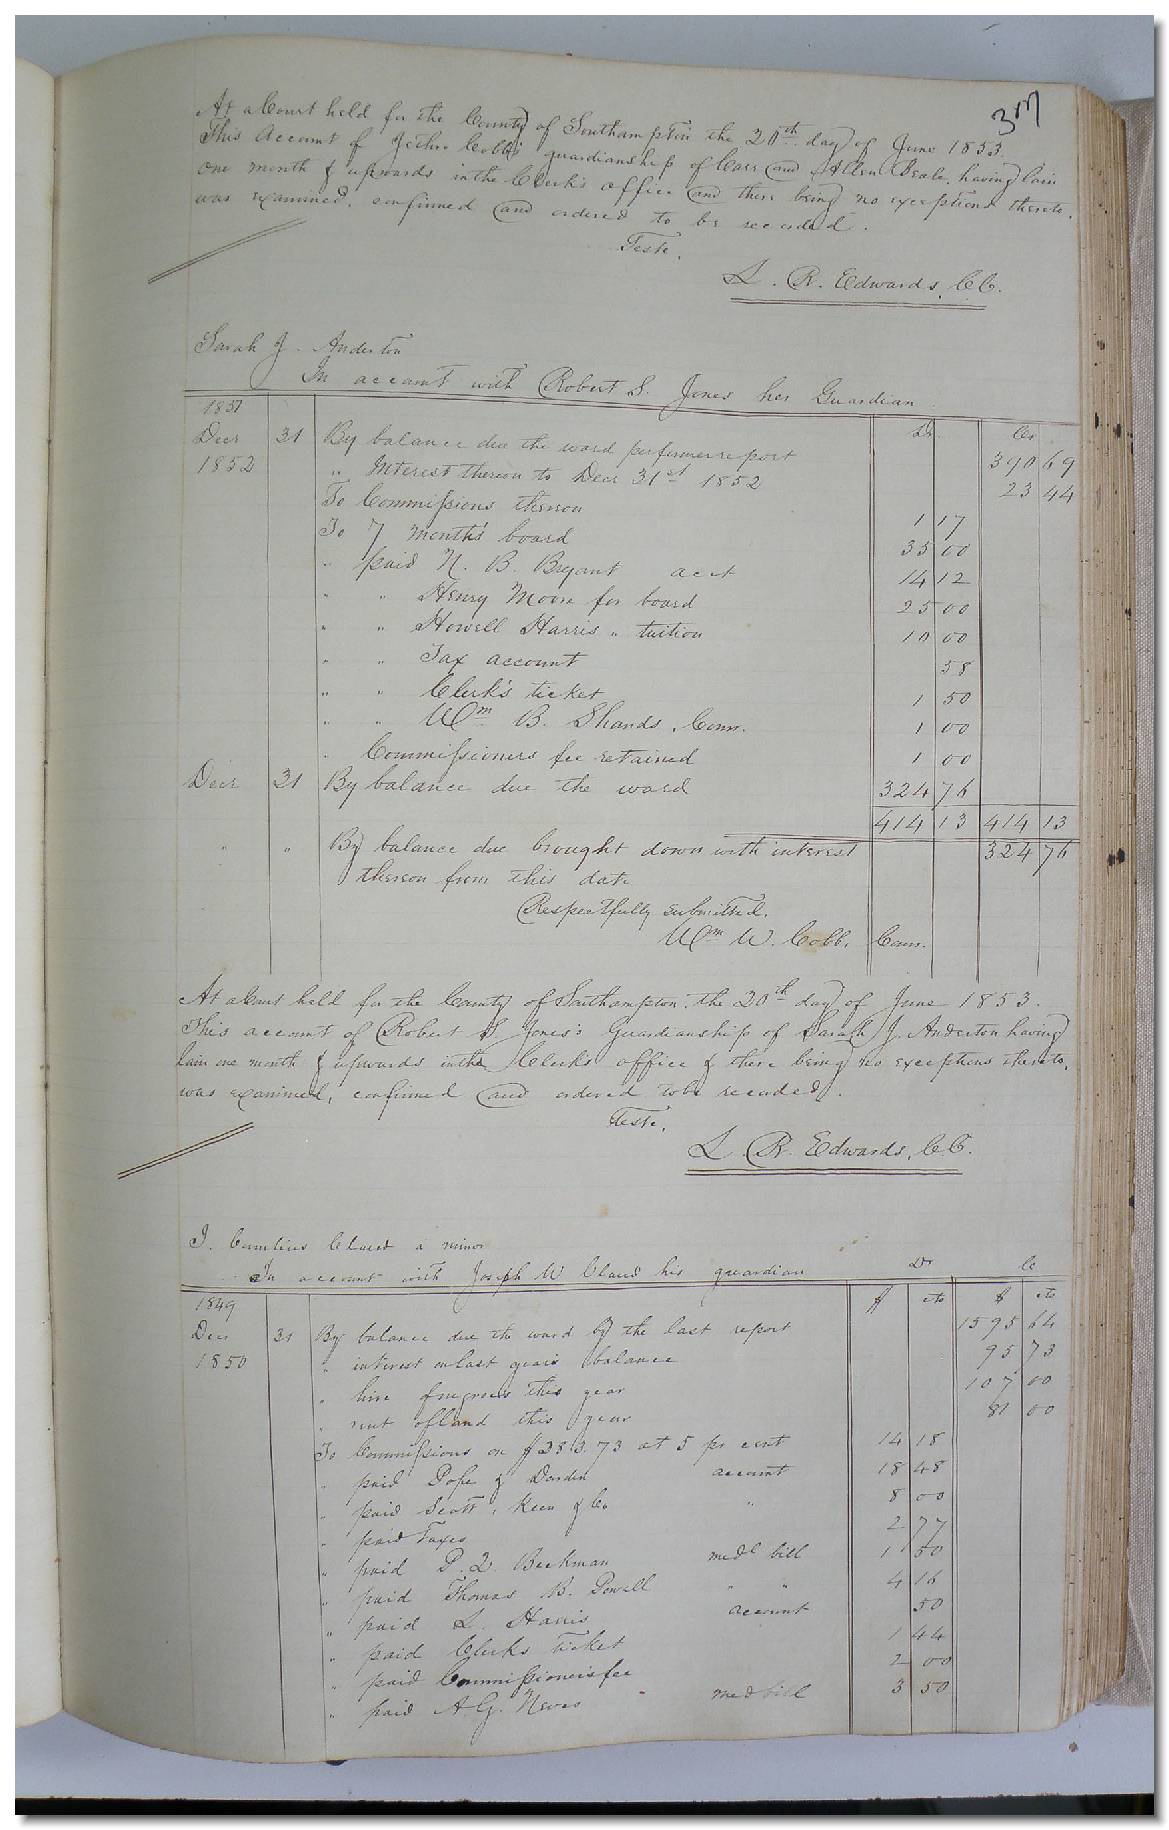 317
At a Court held for the County of Southampton the 20th day of June 1853.
This Account of Jethro Cobb's guardianship of Carr and Allen Beale, having lain
one month & upwards in the Clerk's office and there being no exceptions thereto,
was examined, confirmed and ordered to be recorded.
Teste.
L. R. Edwards, C.C.
Sarah J. Anderton
In account with Robert S. Jones her Guardian
1851 Dr. Cr.
Decr 31 By balance due the ward per former report 390 69
1852 " Interest thereon to Decr 31st 1852 23 44
To Commissions thereon 1 17
To 7 months board 35 00
" paid N. B. Bryant acct 14 12
" " Henry Moore for board 25 00
" " Howell Harris " tuition 10 00
" " Tax account 58
" " Clerk's ticket 1 50
" " Wm B. Shands, Comr. 1 00
" Commissioners fee retained 1 00
Decr 31 By balance due the ward 324 76
414 13 414 13
" " By balance due brought down with interest 324 76
thereon from this date
Respectfully submitted.
Wm W. Cobb, Comr.
At a Court held for the County of Southampton, the 20th day of June 1853.
This account of Robert S Jones's Guardianship of Sarah J. Anderton having
lain one month & upwards in the Clerks office & there being no exceptions thereto,
was examined, confirmed and ordered to be recorded.
Teste,
L. R. Edwards, C.C.
a minor
In account with Joseph W Claud his guardian Dr Cr
1849 $ cts $ cts
Dec 31 By balance due the ward by the last report 1595 64
1850 " interest on last years balance 95 73
" hire of negroes this year 107 00
" rent of land this year 81 00
To Commissions on $283.73 at 5 pr cent 14 18
" paid Pope & Darden account 18 48
" paid Scott, Keen & Co " 8 00
" paid Taxes 2 77
" paid Beekman medl bill 1 50
" paid Thomas B. Powell " " 4 16
" paid L. Harris account 50
" paid Clerks ticket 1 44
" paid Commissioners fee 2 00
" paid A. G. med bill 3 50